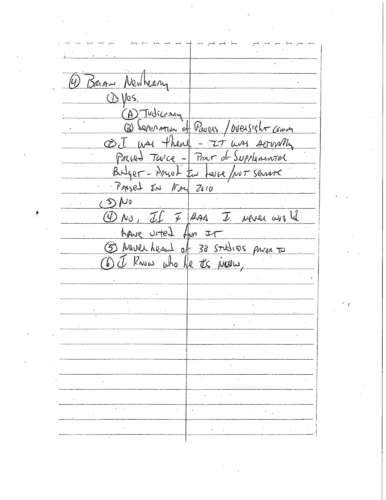 ④ Brian Newberry
① Yes.
Ⓐ Judiciary
Ⓑ Separation of Powers / oversight comm
② I was there - IT was actually
Passed Twice - Part of Supplemental
Budget - Passed In house / NOT senate
Passed In May 2010
③ No
④ No, If I HAD I never would
have voted for IT
⑤ Never heard of 38 Studios prior to
⑥ I Know who he Is now,